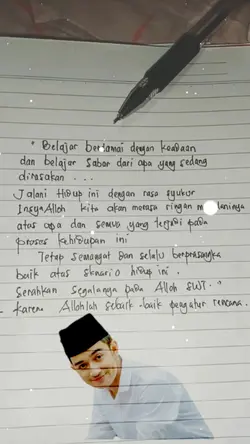 " Belajar berdamai dengan keadaan
dan belajar sabar dari apa yang sedang
dirasakan ...
Jalani Hidup ini dengan rasa syukur
InsyaAlloh kita akan merasa ringan
atas apa dan semua yang terjadi pada
proses kehidupan ini
Tetap semangat Dan selalu berprasangka
baik atas sknario hidup ini.
Serahkan segalanya pada Alloh SWT. "
karena Allohlah sebaik-baik pengatur rencana.